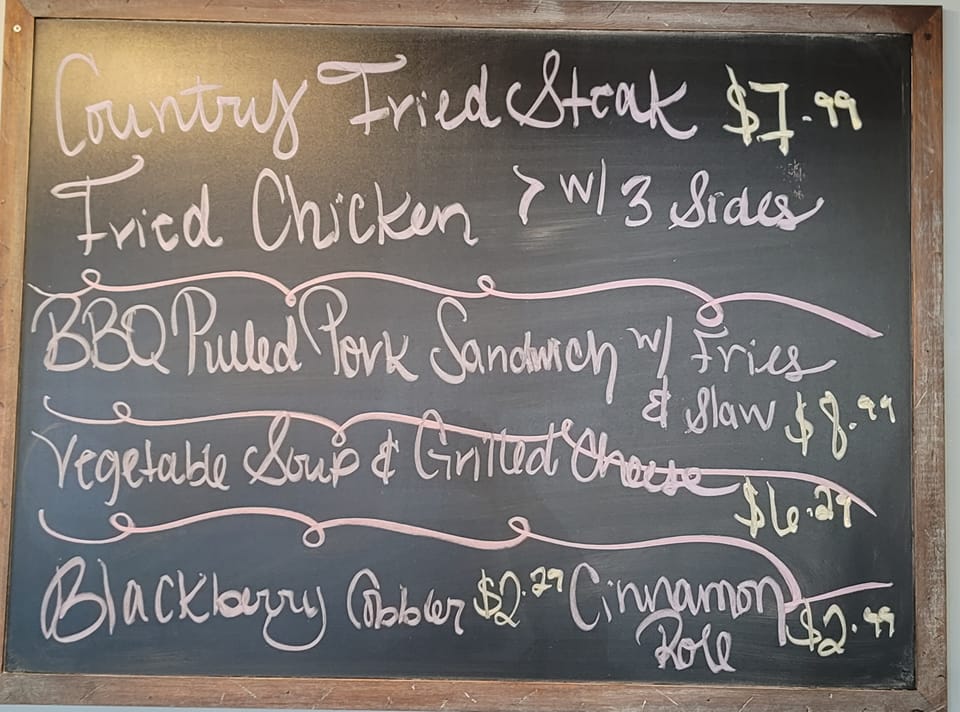 Country Fried Steak $7.99
Fried Chicken > w/ 3 Sides
BBQ Pulled Pork Sandwich w/ Fries
& Slaw $8.99
Vegetable Soup & Grilled Cheese
$6.29
Blackberry Cobbler $2.29 Cinnamon $2.99
Role